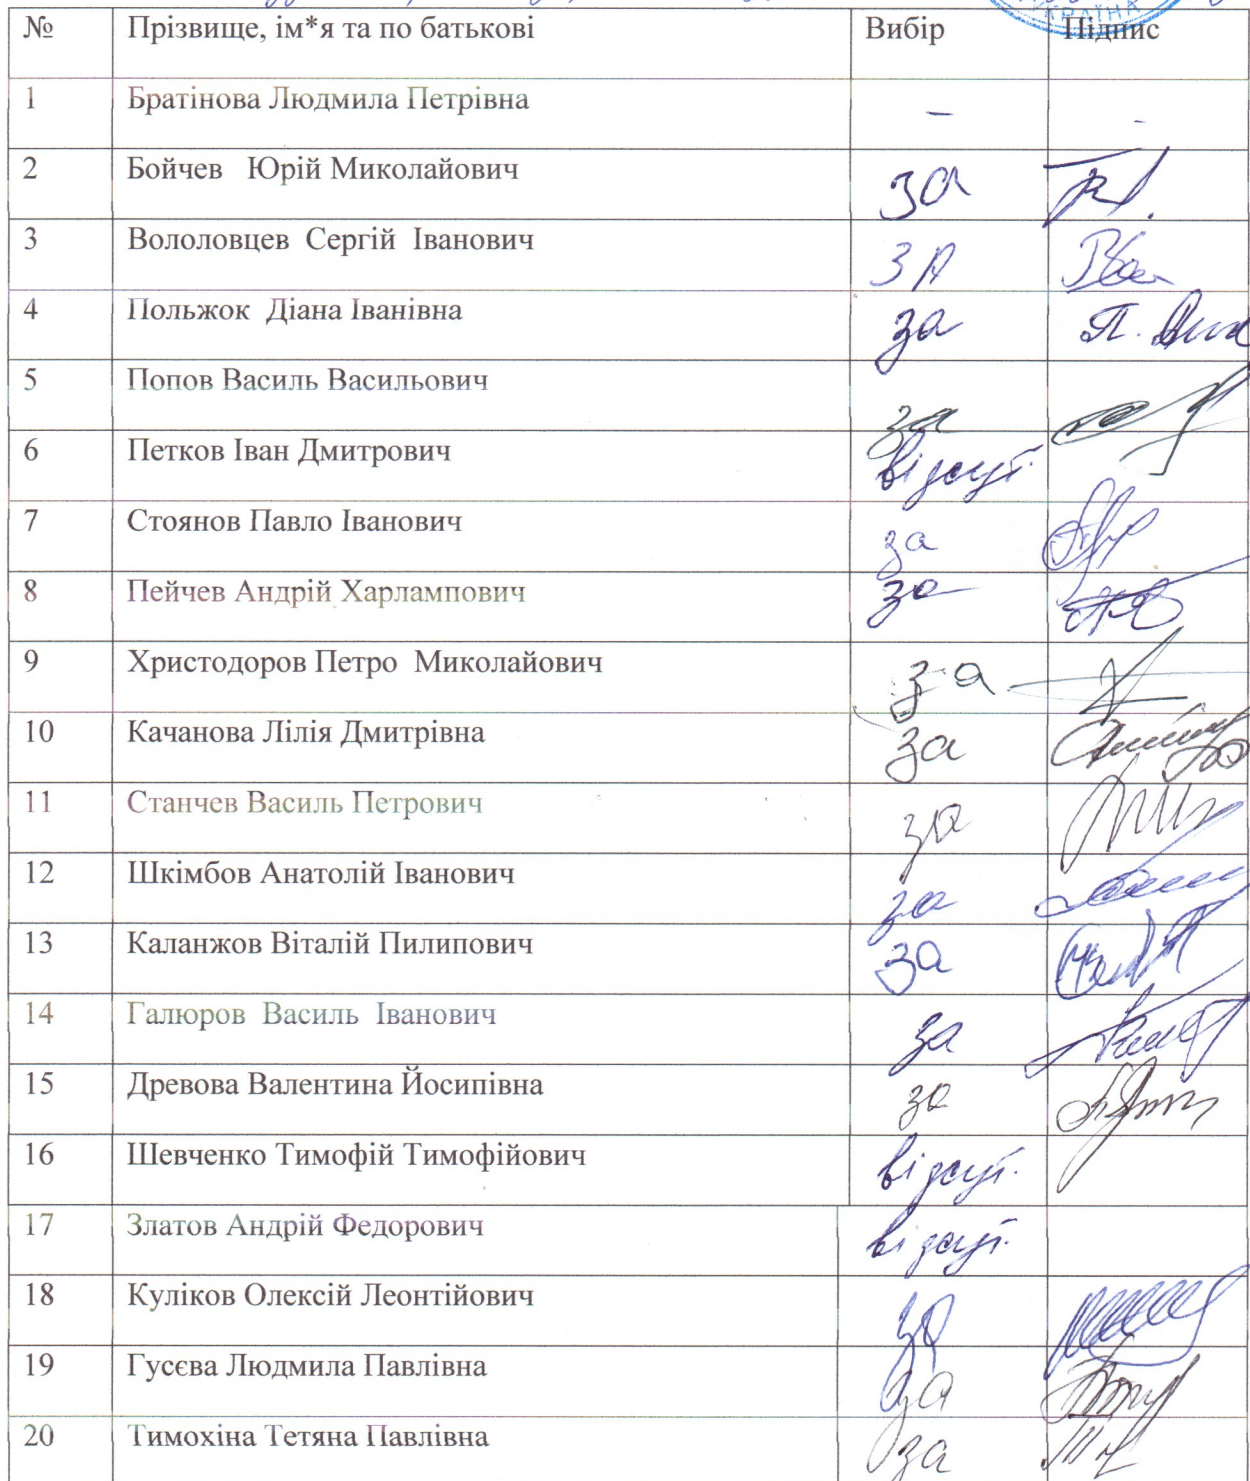 УКРАЇНА
№ Прізвище, ім*я та по батькові Вибір Підпис
1 Братінова Людмила Петрівна - -
2 Бойчев Юрій Миколайович за
3 Вололовцев Сергій Іванович ЗА
4 Польжок Діана Іванівна за
5 Попов Василь Васильович за
6 Петков Іван Дмитрович відсут.
7 Стоянов Павло Іванович за
8 Пейчев Андрій Харлампович за
9 Христодоров Петро Миколайович за
10 Качанова Лілія Дмитрівна за
11 Станчев Василь Петрович за
12 Шкімбов Анатолій Іванович за
13 Каланжов Віталій Пилипович за
14 Галюров Василь Іванович за
15 Древова Валентина Йосипівна за
16 Шевченко Тимофій Тимофійович відсут.
17 Златов Андрій Федорович відсут.
18 Куліков Олексій Леонтійович за
19 Гусєва Людмила Павлівна за
20 Тимохіна Тетяна Павлівна за